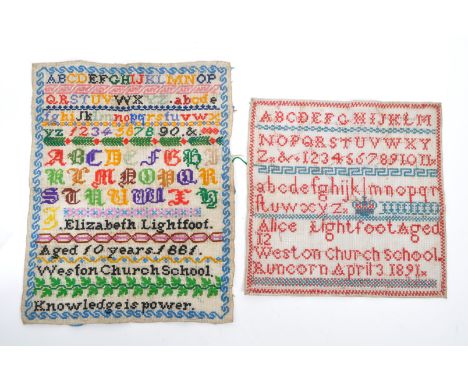 ABCDEFGHIJKLMNOP
QRSTUVWXYZ.abcde
fghijklmnopqrstuvwx
yz 1234567890.&
ABCDEFGHI
KLMNOPQR
STUVWXY
Z.
.Elizabeth Lightfoot.
Aged 10 years.1881.
Weston Church School.
Knowledge is power.
ABCDEFGHIJKLM
NOPQRSTUVWXY
Z&1234567891011
abcdefghijklmnopqr
stuvwxyz
Alice Lightfoot Aged
12
Weston Church School.
Runcorn April 3.1891